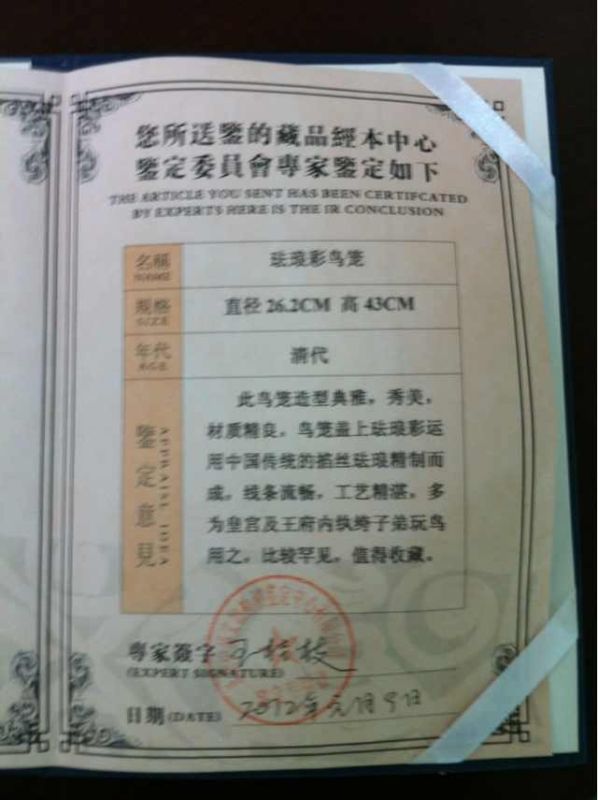 您所送鉴的藏品經本中心
鉴定委員會專家鉴定如下
THE ARTICLE YOU SENT HAS BEEN CERTIFCATED
BY EXPERTS HERE IS THE IR CONCLUSION
名稱
NAME
珐琅彩鸟笼
规格
SIZE
直径26.2CM 高43CM
年代
AGE
清代
鑒定意見
APPRAISE IDEA
此鸟笼造型典雅，秀美，
材质精良。鸟笼盖上珐琅彩运
用中国传统的掐丝珐琅精制而
成。线条流畅，工艺精湛，多
为皇宫及王府内纨绔子弟玩鸟
用之。比较罕见，值得收藏。
專家簽字
(EXPERT SIGNATURE)
日期(DATE) 2012年元月9日